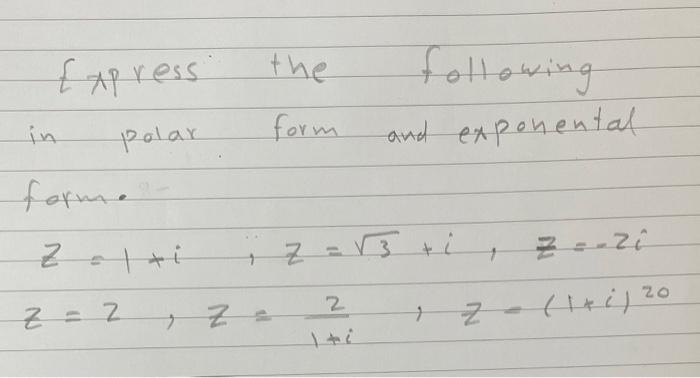 Express the following
in polar form and exponental
form.
Z = 1 + i , Z = √3 + i , Z = -2i
Z = 2 , Z = 2/(1+i) , Z = (1+i)^20